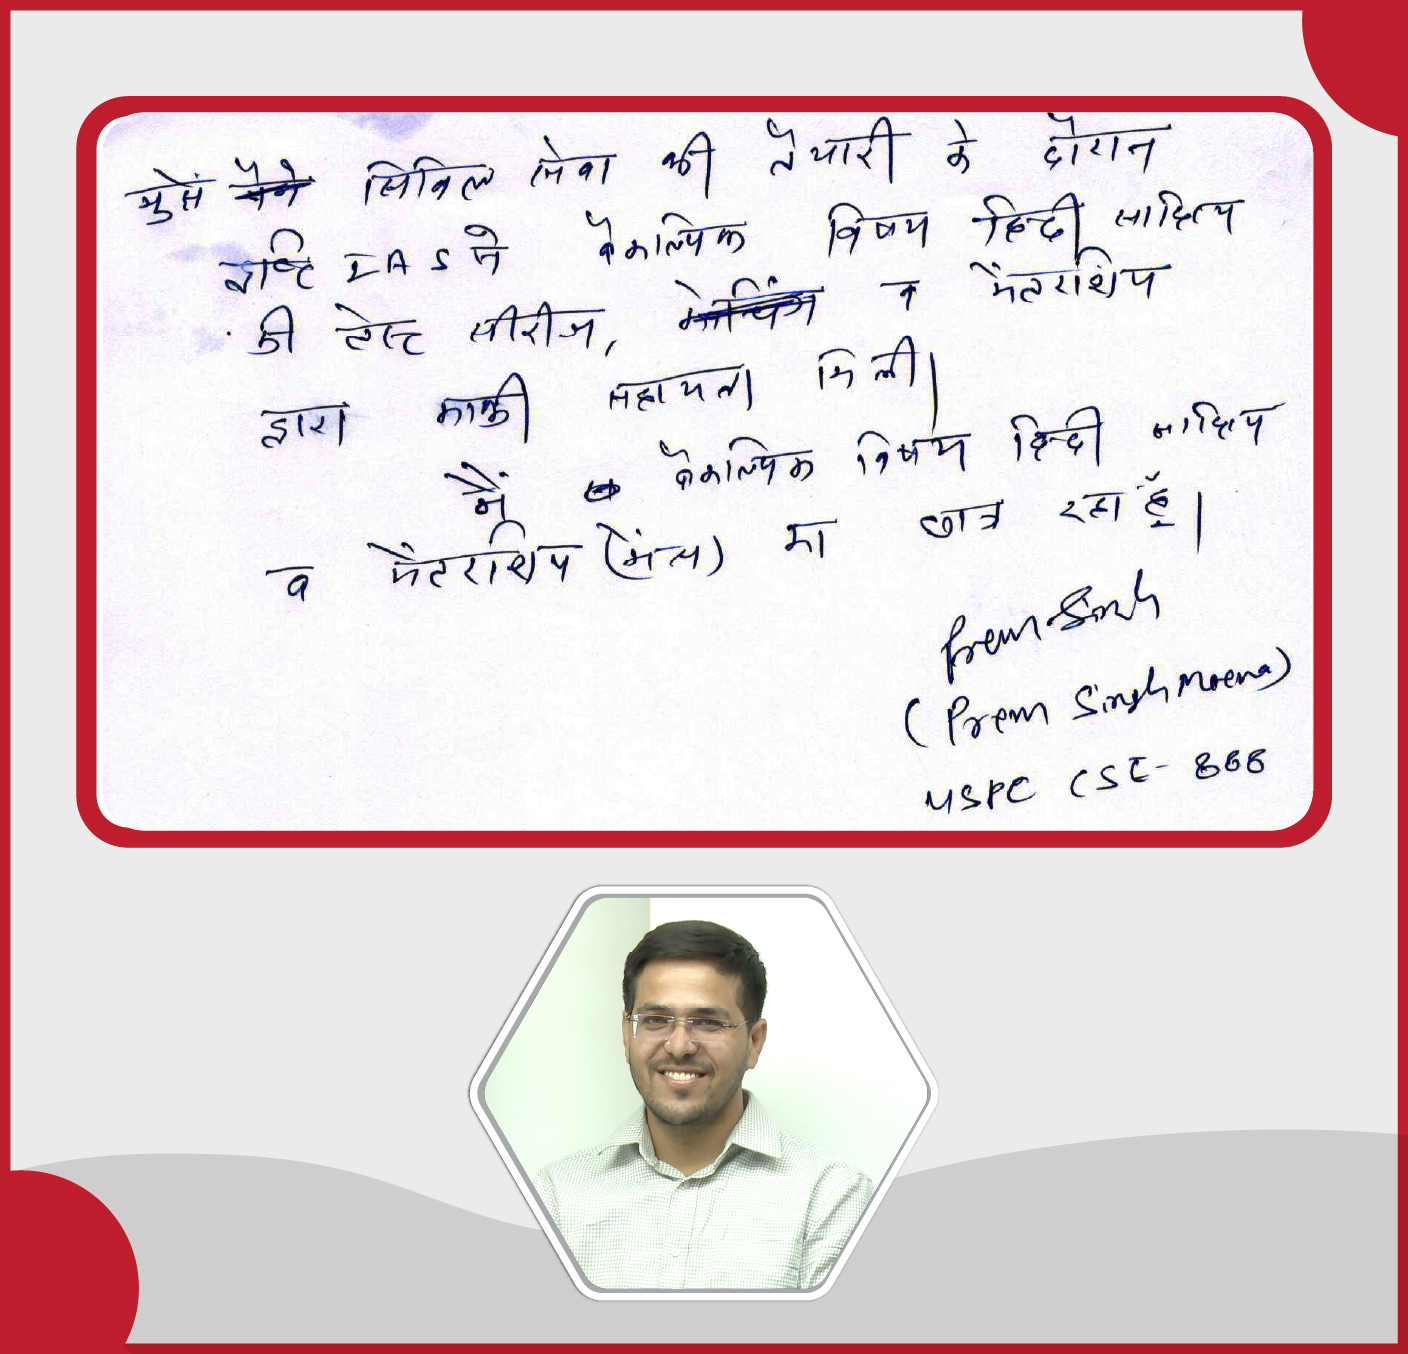 मुझे सिविल सेवा की तैयारी के दौरान
दृष्टि IAS ने वैकल्पिक विषय हिन्दी साहित्य
की टेस्ट सीरीज, व मेंटरशिप
द्वारा काफी सहायता मिली।
मैं वैकल्पिक विषय हिन्दी साहित्य
व मेंटरशिप (मेंस) का छात्र रहा हूँ।
Prem Singh
(Prem Singh Meena)
USPC CSE- 866